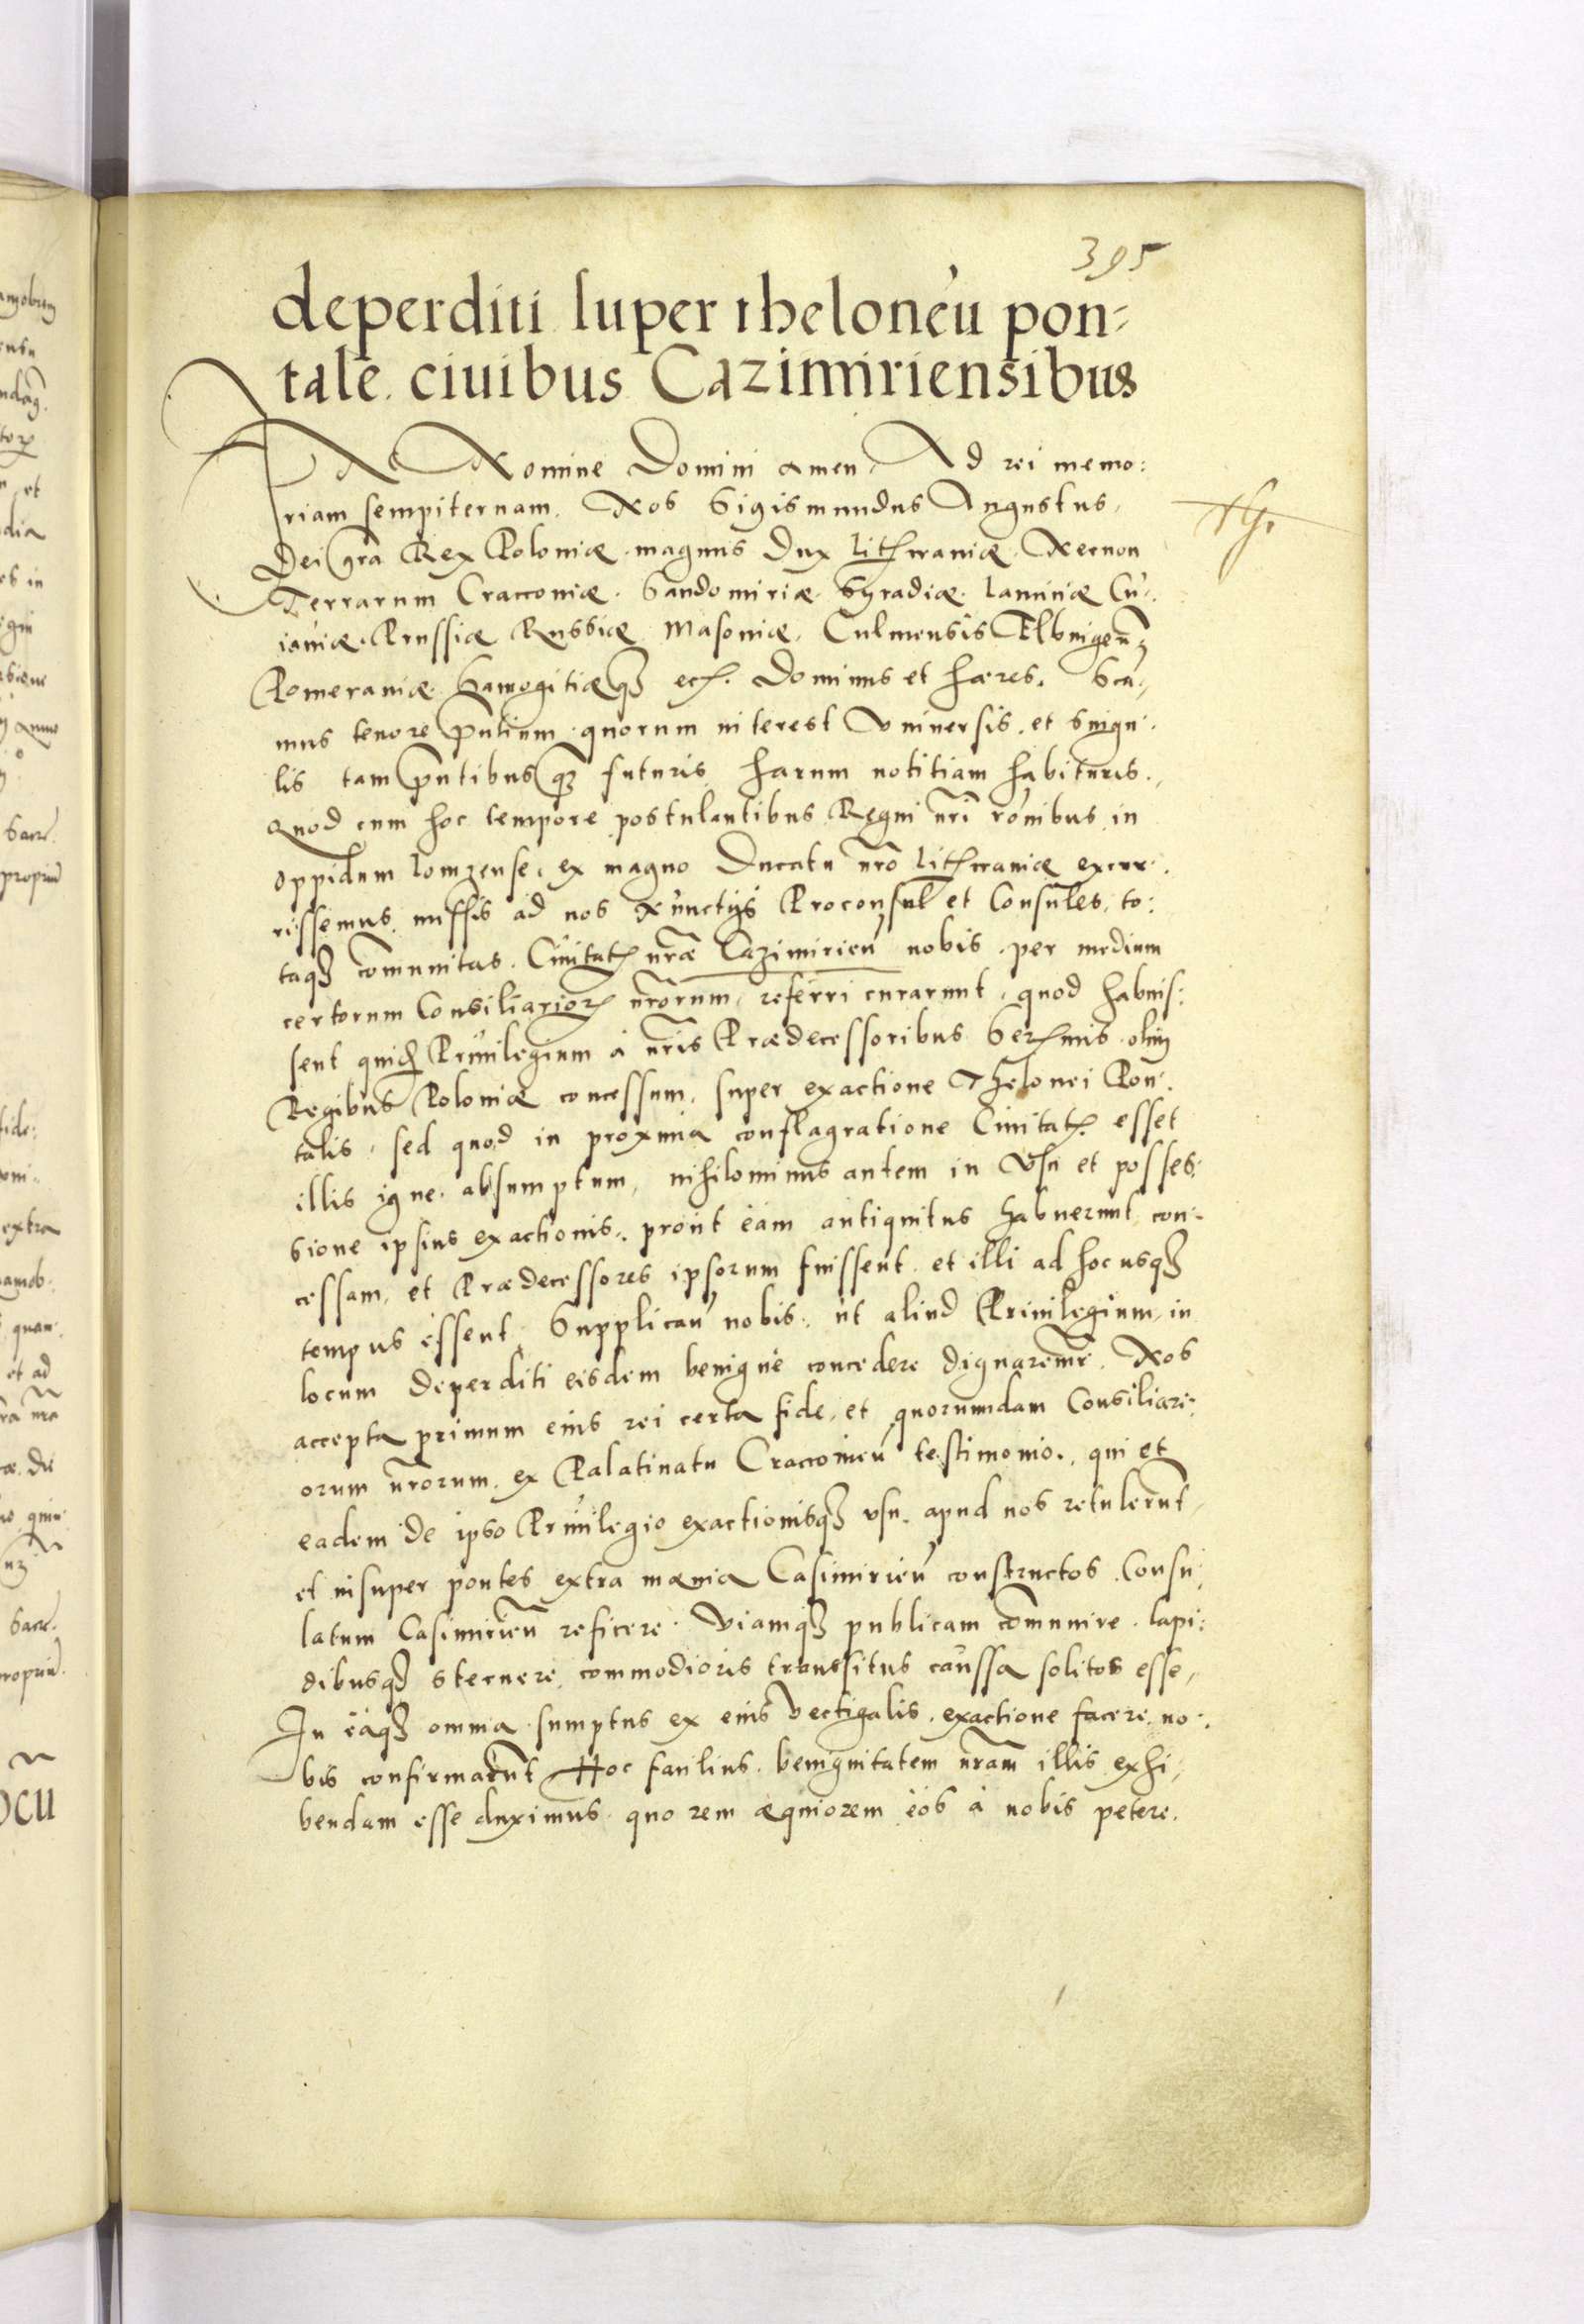 395
deperditi super theloneu pon-
tale. ciuibus Cazimiriensibus
IN Nomine Domini amen, Ad rei memo:
riam sempiternam. Nos Sigismundus Augustus,
Dei gra Rex Poloniæ. magnus Dux Litħwaniæ. Necnon
Terrarum Cracouiæ. Sandomiriæ. Syradiæ. Lanciciæ Cu:
iauiæ. Prussiæ Russiæ Masouiæ, Culmensis Elbingen
Pomeraniæ. Samogitiæq3 ec. Dominus et hæres. Sca:
mus tenore pntium. quorum interest Vniuersis. et singu:
lis tam pntibus q3 futuris harum notitiam habituris.
Quod cum hoc tempore postulantibus Regni nri ronibus in
oppidum Lomzense, ex magno Ducatu nro Litħwaniæ excur:
rissemus. missis ad nos Nunctijs Proconsul et Consules, to:
taq3 comunitas. Ciuitat nræ Cazimirien nobis. per medium
certorum Consiliarior nrorum, referri curarunt, quod habuis:
sent quid Priuilegium à nris Prædecessoribus Sermis. olim
Regibus Poloniæ concessum, super exactione Thelonei Pon:
talis, sed quod in proxima conflagratione Ciuitat esset
illis igne. absumptum, nihilominus autem in Vsu et posses:
sione ipsius exactionis, prout eam antiquitus habuerunt con:
cessam, et Prædecessores ipsorum fuissent. et illi ad hoc usq3
tempus essent. Supplicaru nobis. ut aliud Priuilegium, in
locum deperditi eisdem benigne concedere dignaremr. Nos
accepta primum eius rei certa fide, et quorumdam Consiliari:
orum nrorum. ex Palatinatu Cracouien testimonio., qui et
eadem de ipso Priuilegio exactionisq3 vsu. apud nos retulerunt,
et insuper pontes extra mænia Casimirien constructos. Consu:
latum Casimirien reficere. Viamq3 publicam comunire. lapi:
dibusq3 sternere, commodioris transsitus caussa solitos esse,
In eaq3 omnia sumptus ex eius Vectigalis. exactione facere. no:
bis confirmarunt Hoc facilius. benignitatem nram illis exhi:
bendam esse duximus quo rem æquiorem eos à nobis petere.